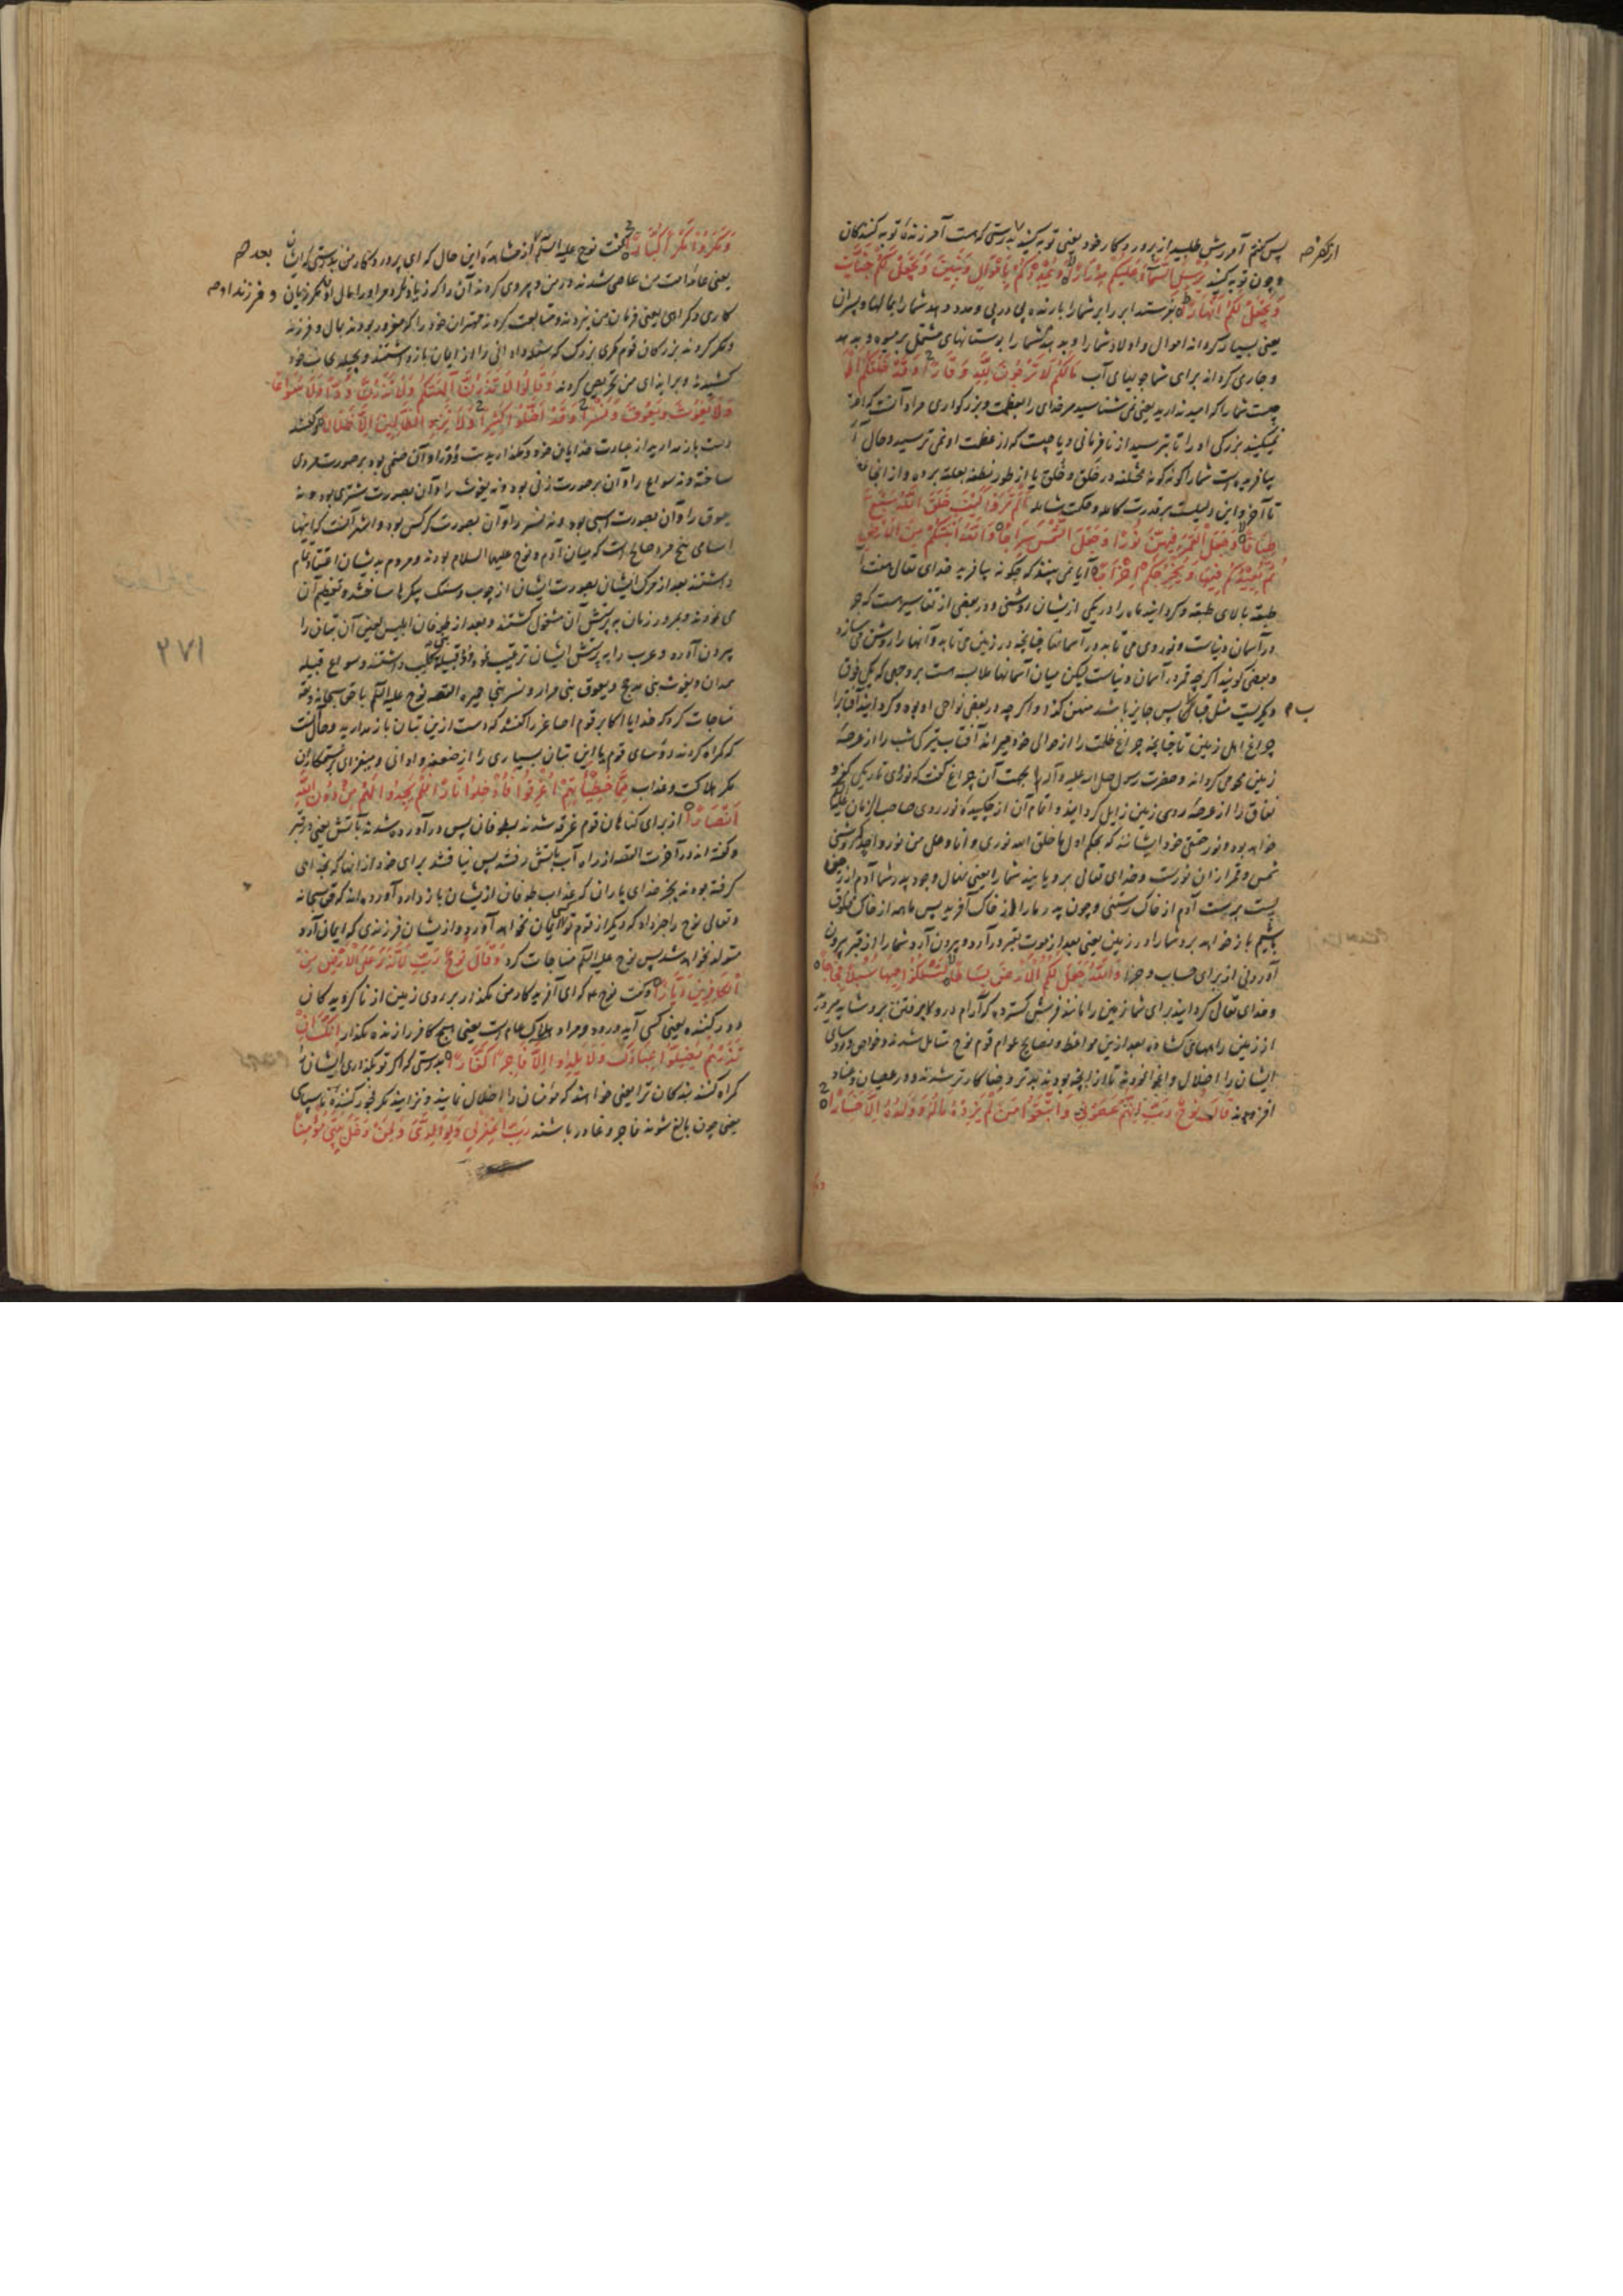 پس گفتم آمرزش طلبید از پروردگار خود یعنی توبه کنید بدرستی که هست آمرزنده توبه کنندگان
از کفر
و چون توبه کنید یُرْسِلِ السَّمَاءَ عَلَیْکُمْ مِدْرَارًا وَیُمْدِدْکُمْ بِأَمْوَالٍ وَبَنِینَ وَیَجْعَلْ لَکُمْ جَنَّاتٍ
وَیَجْعَلْ لَکُمْ أَنْهَارًا بفرستد ابر را بر شما بارنده پی در پی و مدد دهد شما را بمالها و پسران
یعنی بسیار گرداند اموال و اولاد شما را و بدهد شما را بوستانهای مشتمل بر میوه و بدهد
و جاری گرداند برای شما جویهای آب مَا لَکُمْ لَا تَرْجُونَ لِلَّهِ وَقَارًا وَقَدْ خَلَقَکُمْ
چیست شما را که امید ندارید یعنی نمی شناسید مر خدای را بعظمت و بزرگواری مراد آنست که
نمیکنید بزرگی او را تا بترسید از نافرمانی و یا چیست که از عظمت او نمی ترسید و حال
بیافریده است شما را گونه گونه مختلف در خَلق و خُلق یا از طور نطفه بعلقه برده و از انجا
تا آخر و این دلیلست بر قدرت کامله و حکمت شامله أَلَمْ تَرَوْا کَیْفَ خَلَقَ اللَّهُ سَبْعَ
طِبَاقًا وَجَعَلَ الْقَمَرَ فِیهِنَّ نُورًا وَجَعَلَ الشَّمْسَ سِرَاجًا وَاللَّهُ أَنْبَتَکُمْ مِنَ الْأَرْضِ
ثُمَّ یُعِیدُکُمْ فِیهَا وَیُخْرِجُکُمْ إِخْرَاجًا آیا نمی بینید که چگونه بیافرید خدای تعالی هفت
طبقه بالای طبقه و گردانید ماه را در یکی ازیشان روشنی و در بعضی از تفاسیر هست که
در آسمان دنیاست و نور وی می تابد در آسمانها چنانچه در زمین می تابد و آنها را روشن می سازد
و بعضی گویند اگر چه قمر در آسمان دنیاست لیکن میان آسمانها ملابسه هست بر وجهی که یکی فوق
دیگریست مثل قباب پس جایز باشد فیهن گفتن و اگر چه در بعضی نواحی او بود و گردانید آفتاب را
چراغ اهل زمین تا چنانچه چراغ ظلمت را از حوالی خود میراند آفتاب تیرگی شب را از عرصه
زمین محو می گرداند و حضرت رسول صلی الله علیه و آله را بجهت آن چراغ گفت که نور وی تاریکی کفر و
نفاق را از عرصه روی زمین زایل گردانید و اتمام آن از نور روی صاحب الزمان
خواهد بود و نور حقیقی خود ایشانند که بحکم اول ما خلق الله نوری و انا و علی من نور واحد روشنی
شمس و قمر ازان نورست و خدای تعالی برویانید شما را یعنی نهال وجود پدر شما آدم از زمین
پست برست آدم از خاک رستنی و چون پدر ما را از خاک آفرید پس ما همه از خاک مخلوق
باشیم باز خواهد برد شما را در زمین یعنی بعد از موت بقبر درآرد و بیرون آرد شما را از قبر بیرون
آوردنی از برای حساب و جزا وَاللَّهُ جَعَلَ لَکُمُ الْأَرْضَ بِسَاطًا لِتَسْلُکُوا مِنْهَا سُبُلًا فِجَاجًا
و خدای تعالی گردانید برای شما زمین را مانند فرش گسترده که آرام درو و رفتن برو شاید
از زمین راههای گشاده بعد ازین مواعظ و نصایح عوام قوم نوح متمایل شدند و خواص و رؤسای
ایشان را اضلال و اغوا نمودند تا از آنچه بودند بدتر و جفاکارتر شدند و در عصیان و عناد
افزودند قَالَ نُوحٌ رَبِّ إِنَّهُمْ عَصَوْنِی وَاتَّبَعُوا مَنْ لَمْ یَزِدْهُ مَالُهُ وَوَلَدُهُ إِلَّا خَسَارًا
وَمَکَرُوا مَکْرًا کُبَّارًا گفت نوح علیه السلام از مشاهده این حال که ای پروردگار من بدرستی که ایشان
یعنی عامه امت من عاصی شدند در من و پیروی کردند آن را که زیاده نکرد مر او را مال او مگر زیان
و فرزند او
کاری و گمراهی یعنی فرمان من نبردند و متابعت کردند مهتران خود را که مغرور بودند بمال و فرزند
و مکر کردند بزرگان قوم مکری بزرگ که سفله و ادانی را از ایمان باز داشتند و بحیله بجانب خود
کشیدند و بر ایذای من تحریص کردند وَقَالُوا لَا تَذَرُنَّ آلِهَتَکُمْ وَلَا تَذَرُنَّ وَدًّا وَلَا سُوَاعًا
وَلَا یَغُوثَ وَیَعُوقَ وَنَسْرًا وَقَدْ أَضَلُّوا کَثِیرًا وَلَا تَزِدِ الظَّالِمِینَ إِلَّا ضَلَالًا و گفتند
دست باز مدارید از عبادت خدایان خود و مگذارید ودّ را و آن صنمی بود بر صورت مردی
ساخته و نه سواع را و آن بر صورت زنی بود و نه یغوث را و آن بصورت شتری بود و نه
یعوق را و آن بصورت اسبی بود و نه نسر را و آن بصورت کرکس بود و اشهر آنست که اینها
اسامی پنج مرد صالح است که میان آدم و نوح علیهما السلام بودند و مردم بدیشان اعتقاد تمام
داشتند بعد از مرگ ایشان بصورت ایشان از چوب و سنگ پیکرها ساختند و تعظیم آن
می نمودند و بمرور زمان به پرستش آن مشغول گشتند و بعد از طوفان ابلیس لعین آن بتان را
بیرون آورده و عرب را به پرستش ایشان ترغیب نمود و ودّ قبیله بنی کلب داشتند و سواع قبیله
همدان و یغوث بنی مذحج و یعوق بنی مراد و نسر بنی حمیره القصه نوح علیه السلام با حق سبحانه
مناجات کرد که خدایا اکابر قوم اصاغر را گفتند که دست ازین بتان باز مدارید و حال آنست
که گمراه کردند رؤسای قوم با این بتان بسیاری را از ضعفه و ادانی و میفزای ستمکاران
مگر هلاکت و عذاب مِمَّا خَطِیئَاتِهِمْ أُغْرِقُوا فَأُدْخِلُوا نَارًا فَلَمْ یَجِدُوا لَهُمْ مِنْ دُونِ اللَّهِ
أَنْصَارًا از برای گناهان قوم غرقه شدند بطوفان پس درآورده شدند بآتش یعنی در قبر
و گفته اند در آخرت القصه از راه آب بآتش رفتند پس نیافتند برای خود از آنها که بخدایی
گرفته بودند بجز خدای یارانی که عذاب طوفان ازیشان باز دارد آورده اند که حق سبحانه
و تعالی نوح را خبر داد که دیگر از قوم تو کسی ایمان نخواهد آورد و ازیشان فرزندی که ایمان آرد
متولد نخواهد شد پس نوح علیه السلام مناجات کرد وَقَالَ نُوحٌ رَبِّ لَا تَذَرْ عَلَی الْأَرْضِ مِنَ
الْکَافِرِینَ دَیَّارًا و گفت نوح که ای آفریدگار من مگذار بر روی زمین از ناگرویدگان
دور کننده یعنی کسی آید و رود و مراد هلاک عام است یعنی هیچ کافر را زنده مگذار إِنَّکَ إِنْ
تَذَرْهُمْ یُضِلُّوا عِبَادَکَ وَلَا یَلِدُوا إِلَّا فَاجِرًا کَفَّارًا بدرستی که اگر تو بگذاری ایشان را
گمراه کنند بندگان ترا یعنی خواهند که مؤمنان را اضلال نمایند و نزایند مگر فجور کننده ناسپاس
یعنی چون بالغ شوند فاجر و غادر باشند رَبِّ اغْفِرْ لِی وَلِوَالِدَیَّ وَلِمَنْ دَخَلَ بَیْتِیَ مُؤْمِنًا
۲۷۱